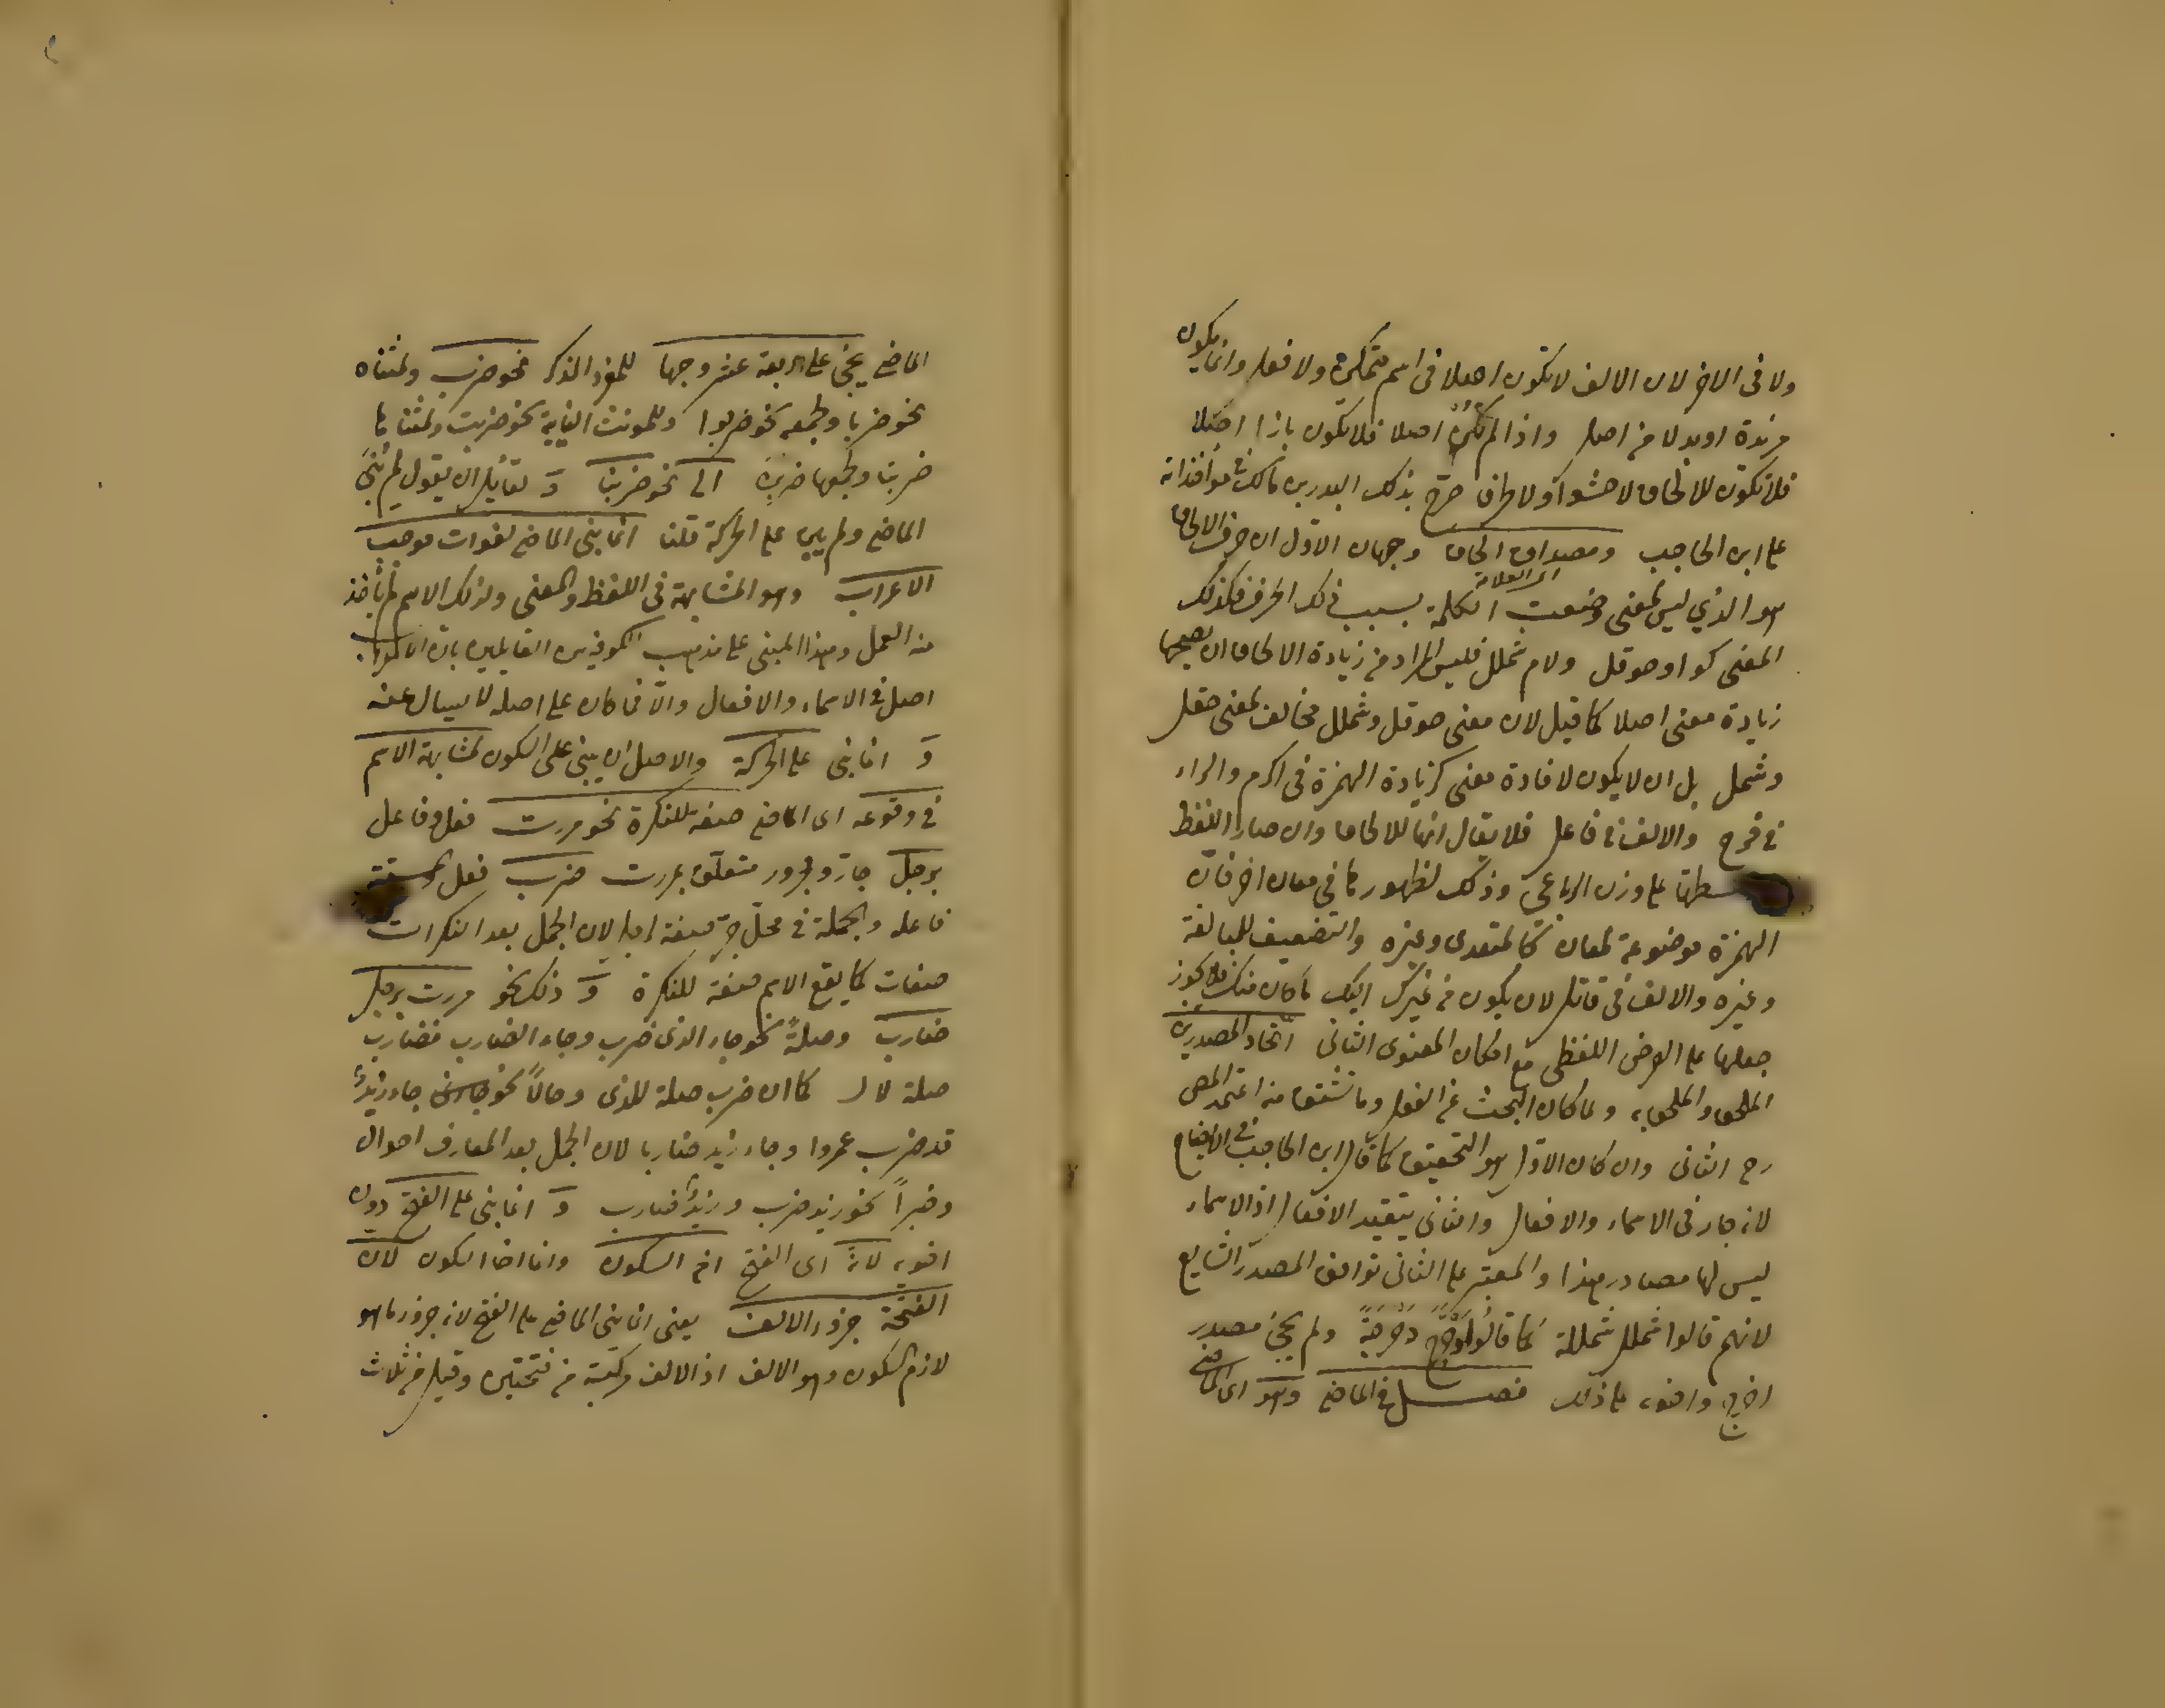 ولا فى الاخر لان الالف لا تكون اصلا فى اسم متمكن ولا فعل وانما يكون
مزيدة او بدلا من اصل واذا لم تكن اصلا فلا يكون بازا اصلا
فلا تكون للالحاق لا حشوا ولا طرفا صرح بذلك البدر بن مالك فى مؤاخذاته
على ابن الحاجب ومصداق الحاق وجهان الاول ان حرف الالحاق
هو الذي ليس لمعنى وضعت الكلمة بسبب ذلك الحرف فكذلك
المعنى كواو حوقل ولام شملل فليس المراد من زيادة الالحاق ان
زيادة معنى اصلا كما قيل لان معنى حوقل وشملل مخالف لمعنى حقل
وشمل بل ان لا يكون لافادة معنى كزيادة الهمزة فى اكرم والراء
فى فرح والالف فى فاعل فلا يقال انها للالحاق وان صار اللفظ
على وزن الرباعى وذلك لظهور كما فى معان اخر فان
الهمزة موضوعة لمعان كالتعدى وغيره والتضعيف للمبالغة
وغيره والالف فى قاتل لان يكون من غيرك اليك ما كان منك فلا يجوز
جعلها على الغرض اللفظى مع امكان المعنوى الثانى اتحاد المصدرين
الملحق والملحق به ولما كان البحث عن الفعل وما يشتق منه اعتمد المص
رح الثانى وان كان الاول هو التحقيق كما قال ابن الحاجب فى الايضاح
لانه جار فى الاسماء والافعال والثانى يتقيد الافعال اذ الاسماء
ليس لها مصادر هذا والمعتبر على الثانى توافق المصدر الشايع
لانهم قالوا شملل شمللة كما قالوا دحرج دحرجة ولم يجئ مصدر
اخرج وافق على ذلك فصل فى الماضى وهو اى الماضى
الماضى يجئ على اربعة عشر وجها للمفرد المذكر نحو ضرب ولمثناه
نحو ضربا ولجمعه نحو ضربوا وللمونث الغايبة نحو ضربت ولمثناها
ضربتا ولجمعها ضربن الى نحو ضربنا و لقائل ان يقول لم بنى
الماضى ولم بنى على الحركة قلنا انما بنى الماضى لفوات موجب
الاعراب وهو المشابهة فى اللفظ والمعنى ولذلك الاسم لم ياخذ
منه العمل وهذا المبنى على مذهب الكوفيين القايلين بان الاعراب
اصل فى الاسماء والافعال والا فما كان على اصله لا يسال عنه
و انما بنى على الحركة والاصل ان يبنى على السكون لمشابهة الاسم
فى وقوعه اى الماضى صفة للنكرة نحو مررت فعل وفاعل
برجل جار ومجرور متعلق بمررت ضرب فعل
فاعله والجملة فى محل جر صفة رجل لان الجمل بعد النكرات
صفات كما يقع الاسم صفة للنكرة و ذلك نحو مررت برجل
ضارب وصلةً نحو جاء الذى ضرب وجاء الضارب فضارب
صلة لال كما ان ضرب صلة للذى وحالاً نحو جاء زيد
قد ضرب عمروا وجاء زيد ضاربا لان الجمل بعد المعارف احوال
وخبراً نحو زيد ضرب وزيد ضارب و انما بنى على الفتح دون
اخويه لانه اى الفتح اخ السكون وانما اخا السكون لان
الفتحة جزء الالف يعنى انما بنى الماضى على الفتح لانه جزء ما هو
لازم السكون وهو الالف اذ الالف مركبة من فتحتين وقيل من ثلاث